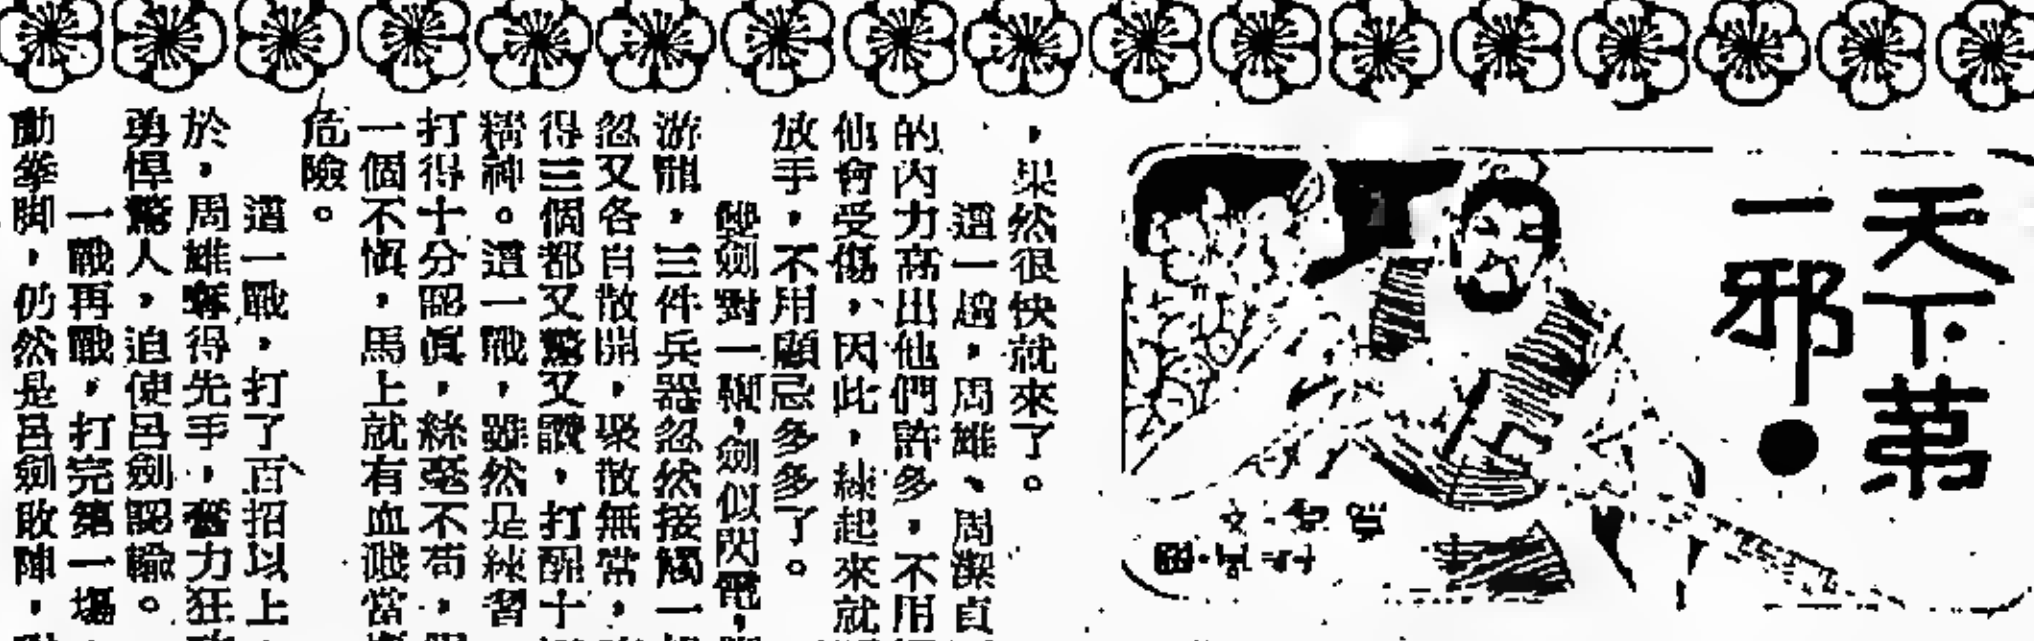 天下第
一邪
，果然很快就來了。
這一趟，周雄、周潔貞
的內力高出他們許多，不用
他會受傷，因此，練起來就
放手，不用顧忌多多了。
雙劍對一鞭，劍似閃電，
游龍，三件兵器忽然接觸一
忽又各自散開，聚散無常，
得三個都又驚又讚，打醒十
精神。這一戰，雖然是練習
打得十分認眞，絲毫不苟，
一個不慎，馬上就有血濺當
危險。
這一戰，打了百招以上，
於，周雄奪得先手，奮力狂
勇悍驚人，迫使呂劍認輸。
一戰再戰，打完第一場，
動拳脚，仍然是呂劍敗陣，